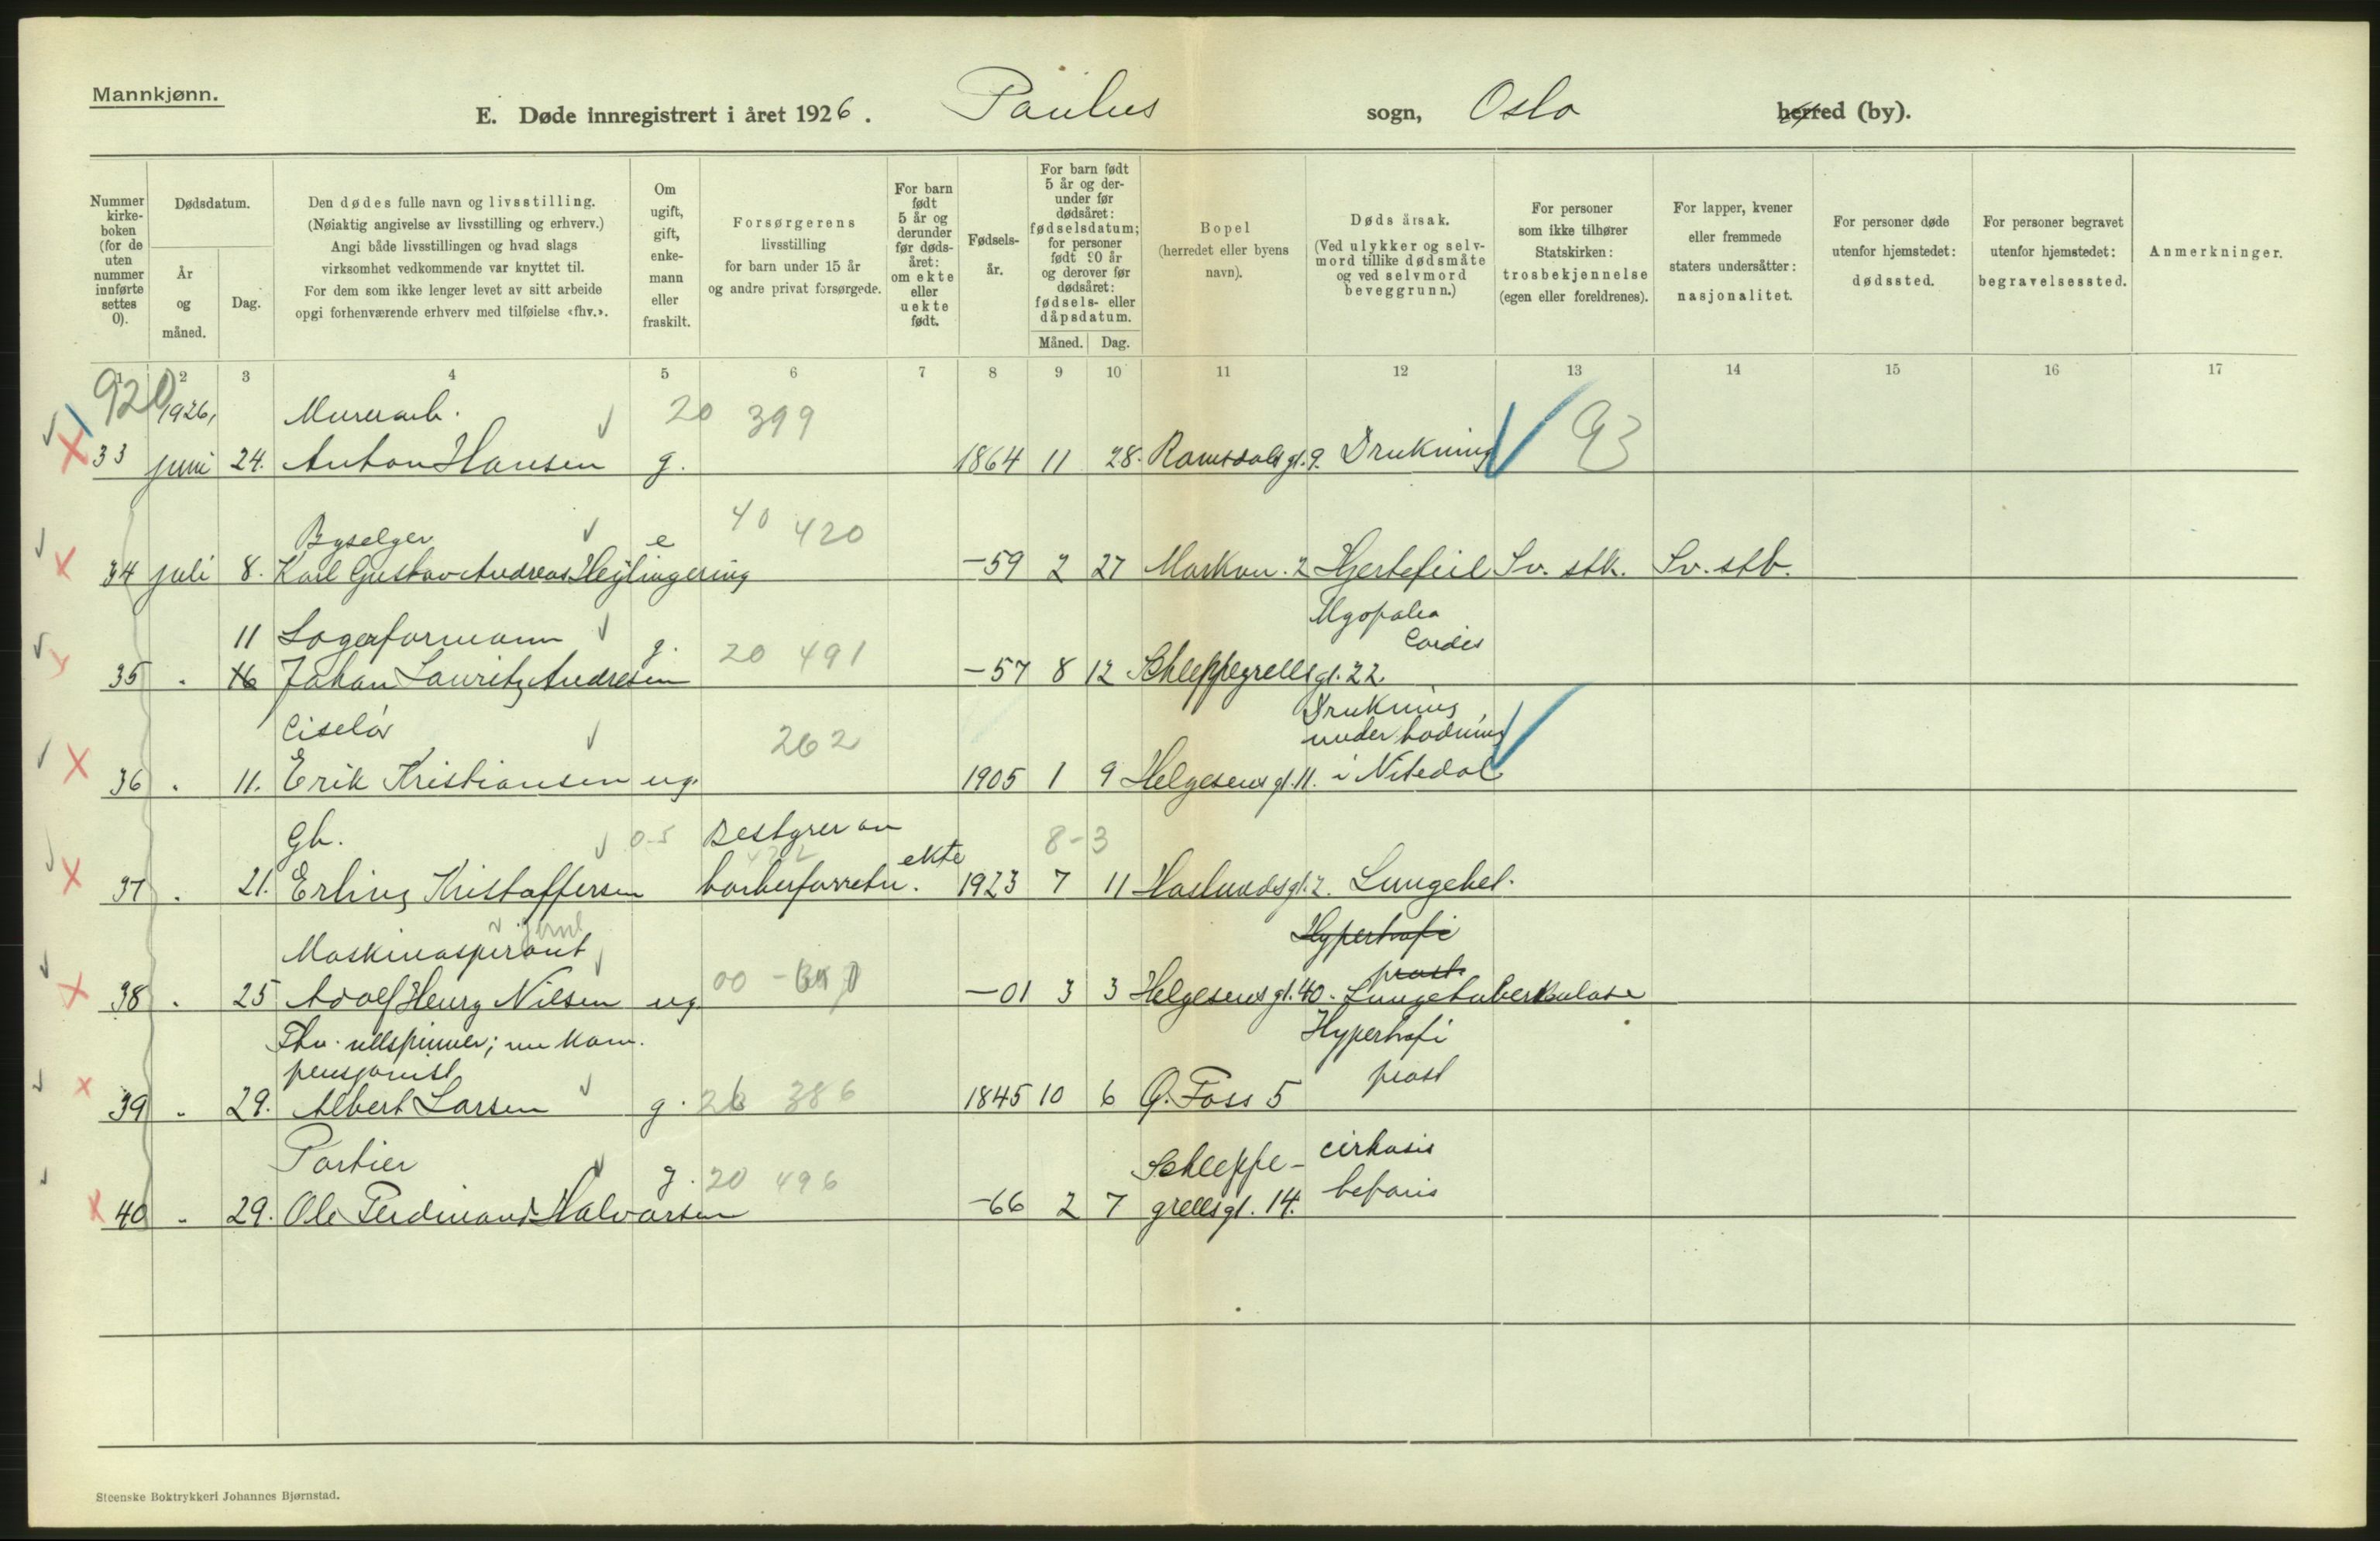 Mannkjønn.
E. Døde innregistrert i året 1926. Paulus sogn, Oslo herred (by).
Nummer kirke-boken (for de uten nummer innførte settes 0).
Dødsdatum.
År og måned.
Dag.
Den dødes fulle navn og livsstilling.
(Nøiaktig angivelse av livsstilling og erhverv.)
Angi både livsstillingen og hvad slags
virksomhet vedkommende var knyttet til.
For dem som ikke lenger levet av sitt arbeide
opgi forhenværende erhverv med tilføielse «fhv.».
Om ugift, gift, enke-mann eller fraskilt.
Forsørgerens
livsstilling
for barn under 15 år
og andre privat forsørgede.
For barn født 5 år og derunder før døds-året: om ekte eller uekte født.
Fødsels-år.
For barn født 5 år og der-under før dødsåret: fødselsdatum; for personer født 90 år og derover før dødsåret: fødsels- eller dåpsdatum.
Måned. Dag.
Bopel
(herredet eller byens navn).
Døds årsak.
(Ved ulykker og selv-mord tillike dødsmåte og ved selvmord beveggrunn.)
For personer som ikke tilhører Statskirken: trosbekjennelse (egen eller foreldrenes).
For lapper, kvener eller fremmede staters undersåtter: nasjonalitet.
For personer døde utenfor hjemstedet: dødssted.
For personer begravet utenfor hjemstedet: begravelsessted.
Anmerkninger.
1 2 3 4 5 6 7 8 9 10 11 12 13 14 15 16 17
920 1926, Murerarb. 20 399 93
33 juni 24. Anton Hansen g. 1864 11 28. Romsdalsgt. 9. Drukning
Byselger e 40 420
34 juli 8. Karl Gustav Andreas -59 2 27 Markvn. 2 Hjertefeil Sv. stk. Sv. stb.
11 Lagerformann g. 20 491 Myopatia Cordis
35 " 16 Johan Lauritz Andresen -57 8 12 Schleppegrellsgt. 22.
Ciselør 262 Drukning under badning
36 " 11. Erik Kristiansen ug. 1905 1 9 Helgesensgt. 11. i Nitedal
Gh. 0-5 Bestyrer av 8-3
37 " 21. Erling Kristoffersen barberforretn. ekte 1923 7 11 Haslundsgt. 2. Lungebet.
Maskinaspirant Hypertrofi prost.
38 " 25 Adolf Henry Nilsen ug. 00 -01 3 3 Helgesensgt. 40. Lungetuberkulose
Fhv. ullspinner; nu kom. Hypertrofi
pensjonist prost
39 " 29. Albert Larsen g. 386 1845 10 6 Q. Foss 5
Portier g. 20 496 Schleppe- cirhosis
40 " 29. Ole Ferdinand Halvorsen -66 2 7 grellsgt. 14. hepatis
Steenske Boktrykkeri Johannes Bjørnstad.